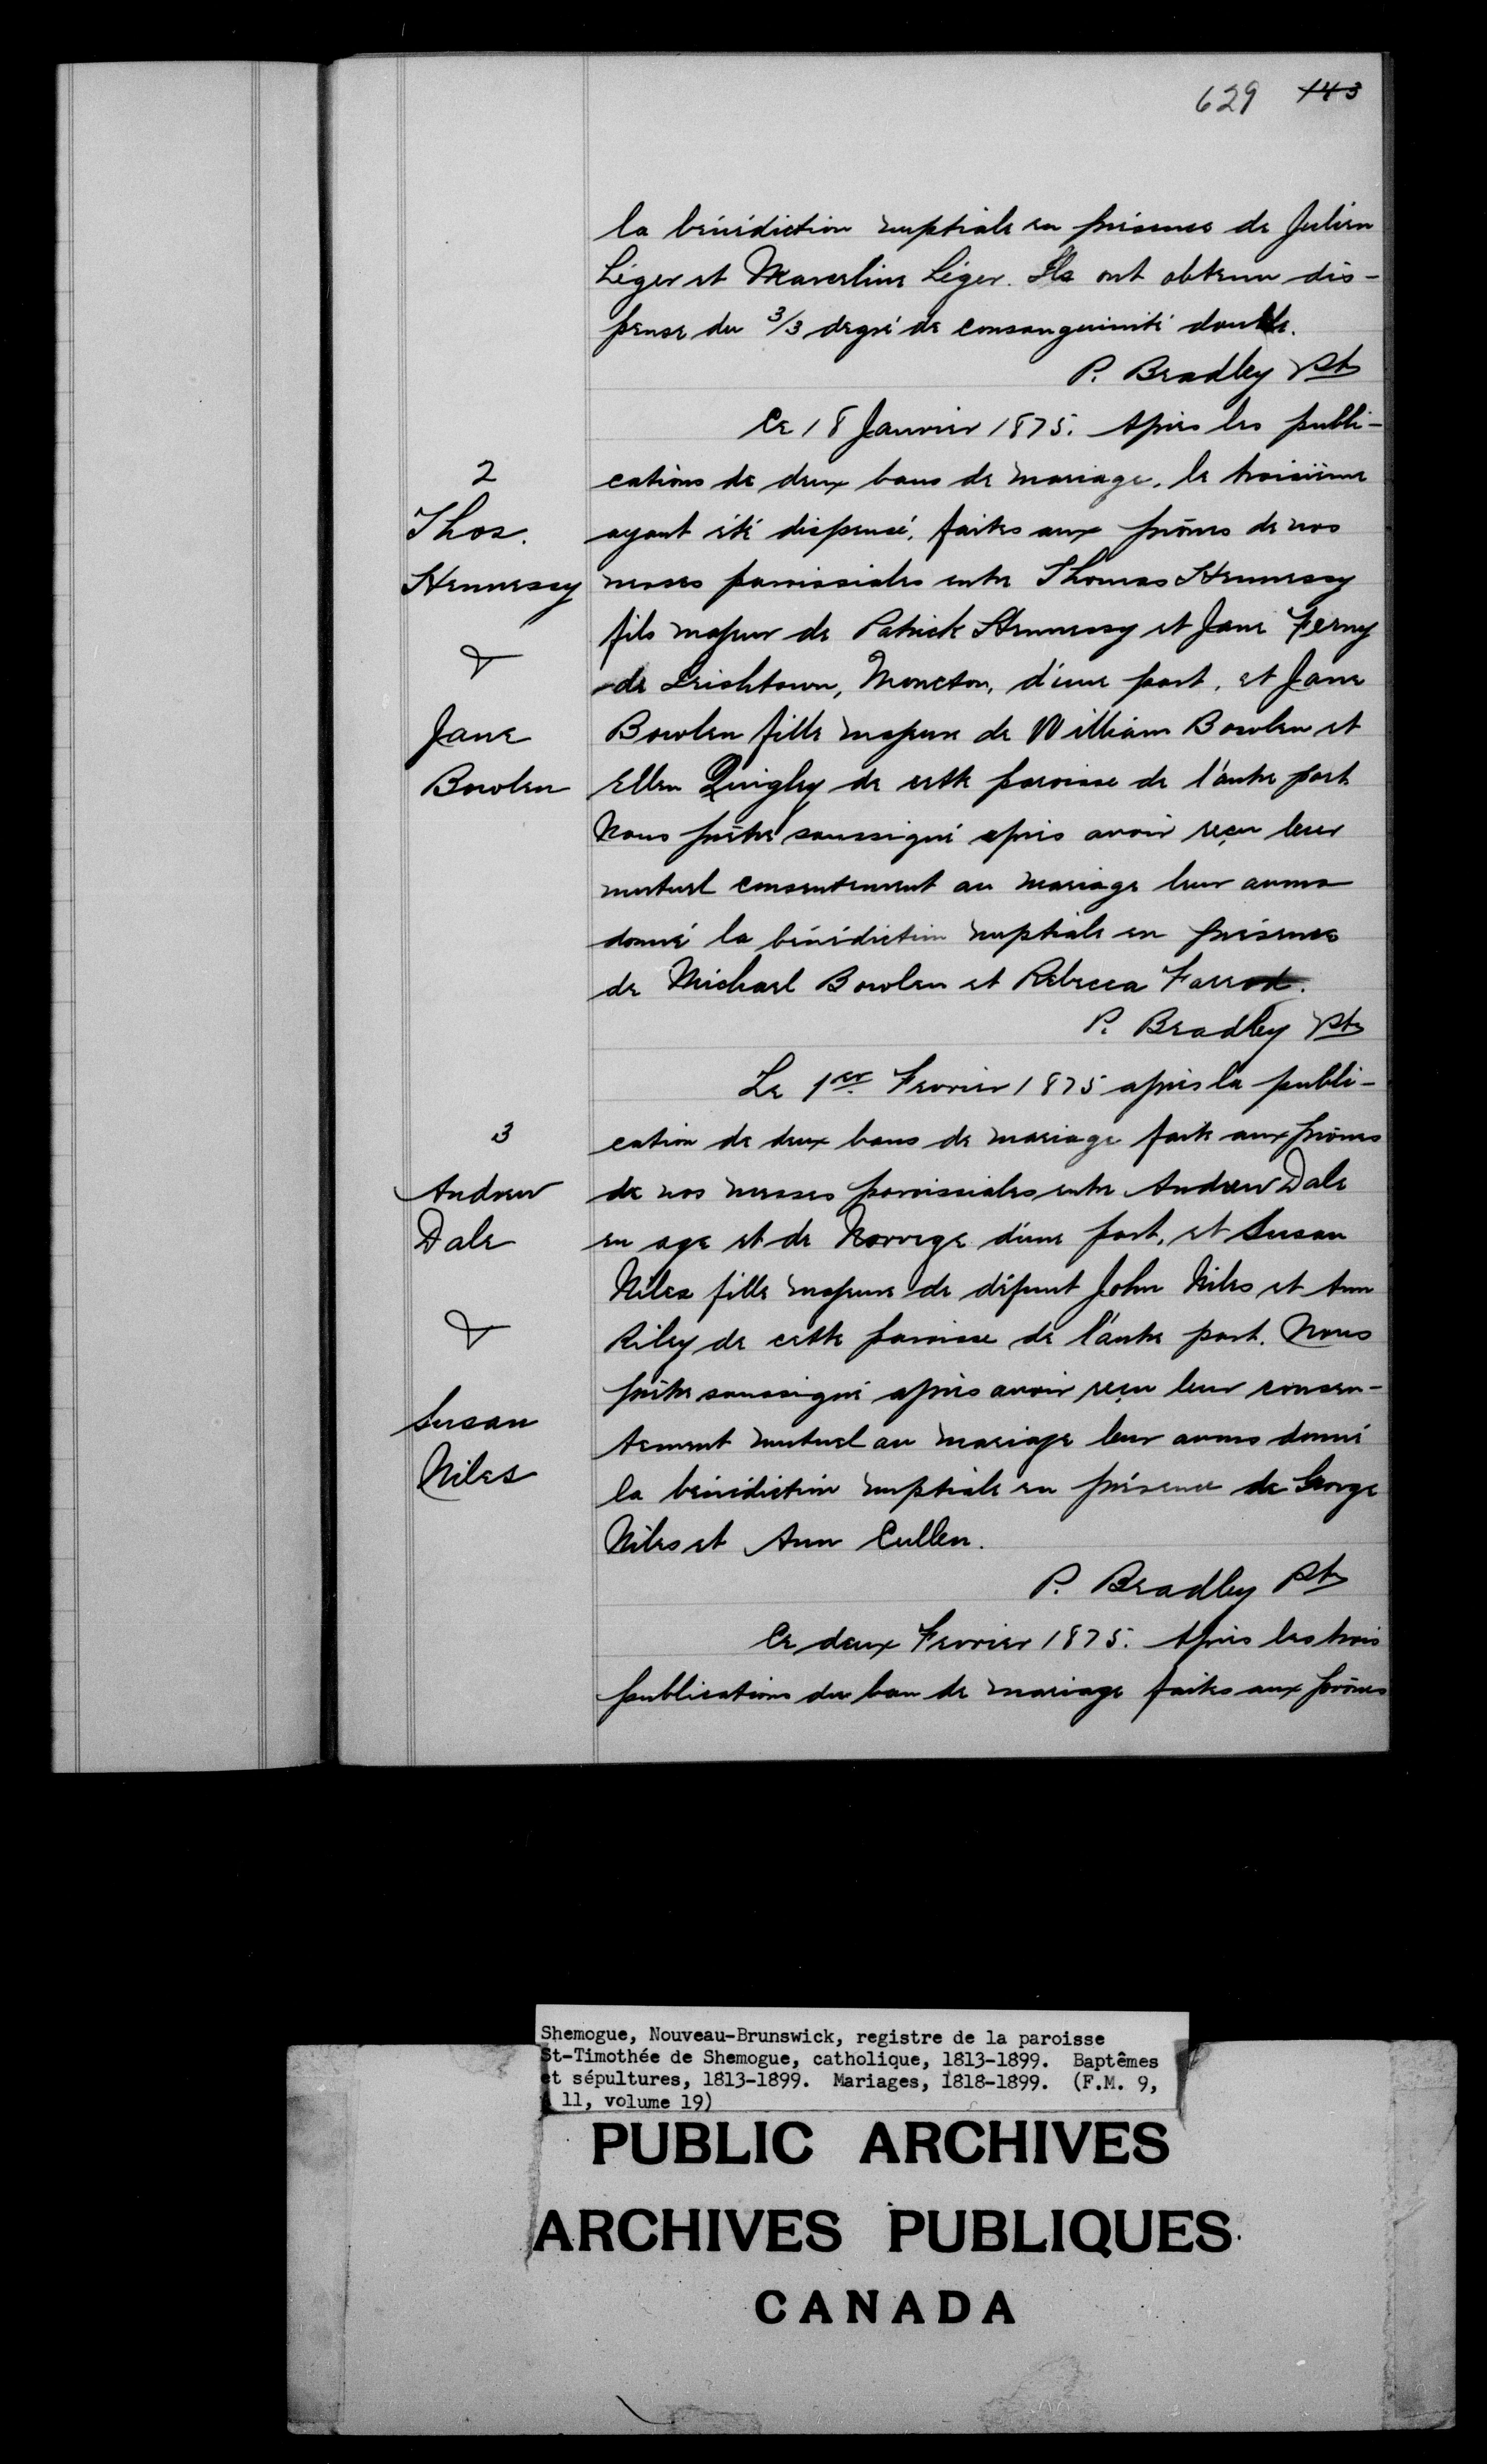 629 143
la bénédiction nuptiale en présence de Julien
Léger et Marceline Léger. Ils ont obtenu dis-
pense du 3/3 degré de consanguinité double.
P. Bradley Ptr
Ce 18 Janvier 1875. Après les publi-
2
cations de deux bans de mariage, le troisième
Thos.
ayant été dispensé, faites aux prônes de nos
Hennessy
messes paroissiales entre Thomas Hennessy
fils majeur de Patrick Hennessy et Jane Ferny
&
de Irishtown, Moncton, d'une part, et Jane
Jane
Bowlen fille majeure de William Bowlen et
Bowlen
Ellen Quigley de cette paroisse de l'autre part
Nous prêtre soussigné après avoir reçu leur
mutuel consentement au mariage leur avons
donné la bénédiction nuptiale en présence
de Michael Bowlen et Rebecca
P. Bradley Ptr
Le 1er Fevrier 1875 après la publi-
3
cation de deux bans de mariage faite aux prônes
Andrew
de nos messes paroissiales entre Andrew Dale
Dale
en age et de Norvege d'une part, et Susan
Niles fille majeure de défunt John Niles et Ann
&
Riley de cette paroisse de l'autre part. Nous
prêtre soussigné après avoir reçu leur consen-
Susan
tement mutuel au mariage leur avons donné
Niles
la bénédiction nuptiale en présence de George
Niles et Ann Cullen.
P. Bradley Ptr
Ce deux Fevrier 1875. Après les trois
publications du ban de mariage faites aux prônes
Shemogue, Nouveau-Brunswick, registre de la paroisse
St-Timothée de Shemogue, catholique, 1813-1899. Baptêmes
et sépultures, 1813-1899. Mariages, 1818-1899. (F.M. 9,
11, volume 19)
PUBLIC ARCHIVES
ARCHIVES PUBLIQUES
CANADA